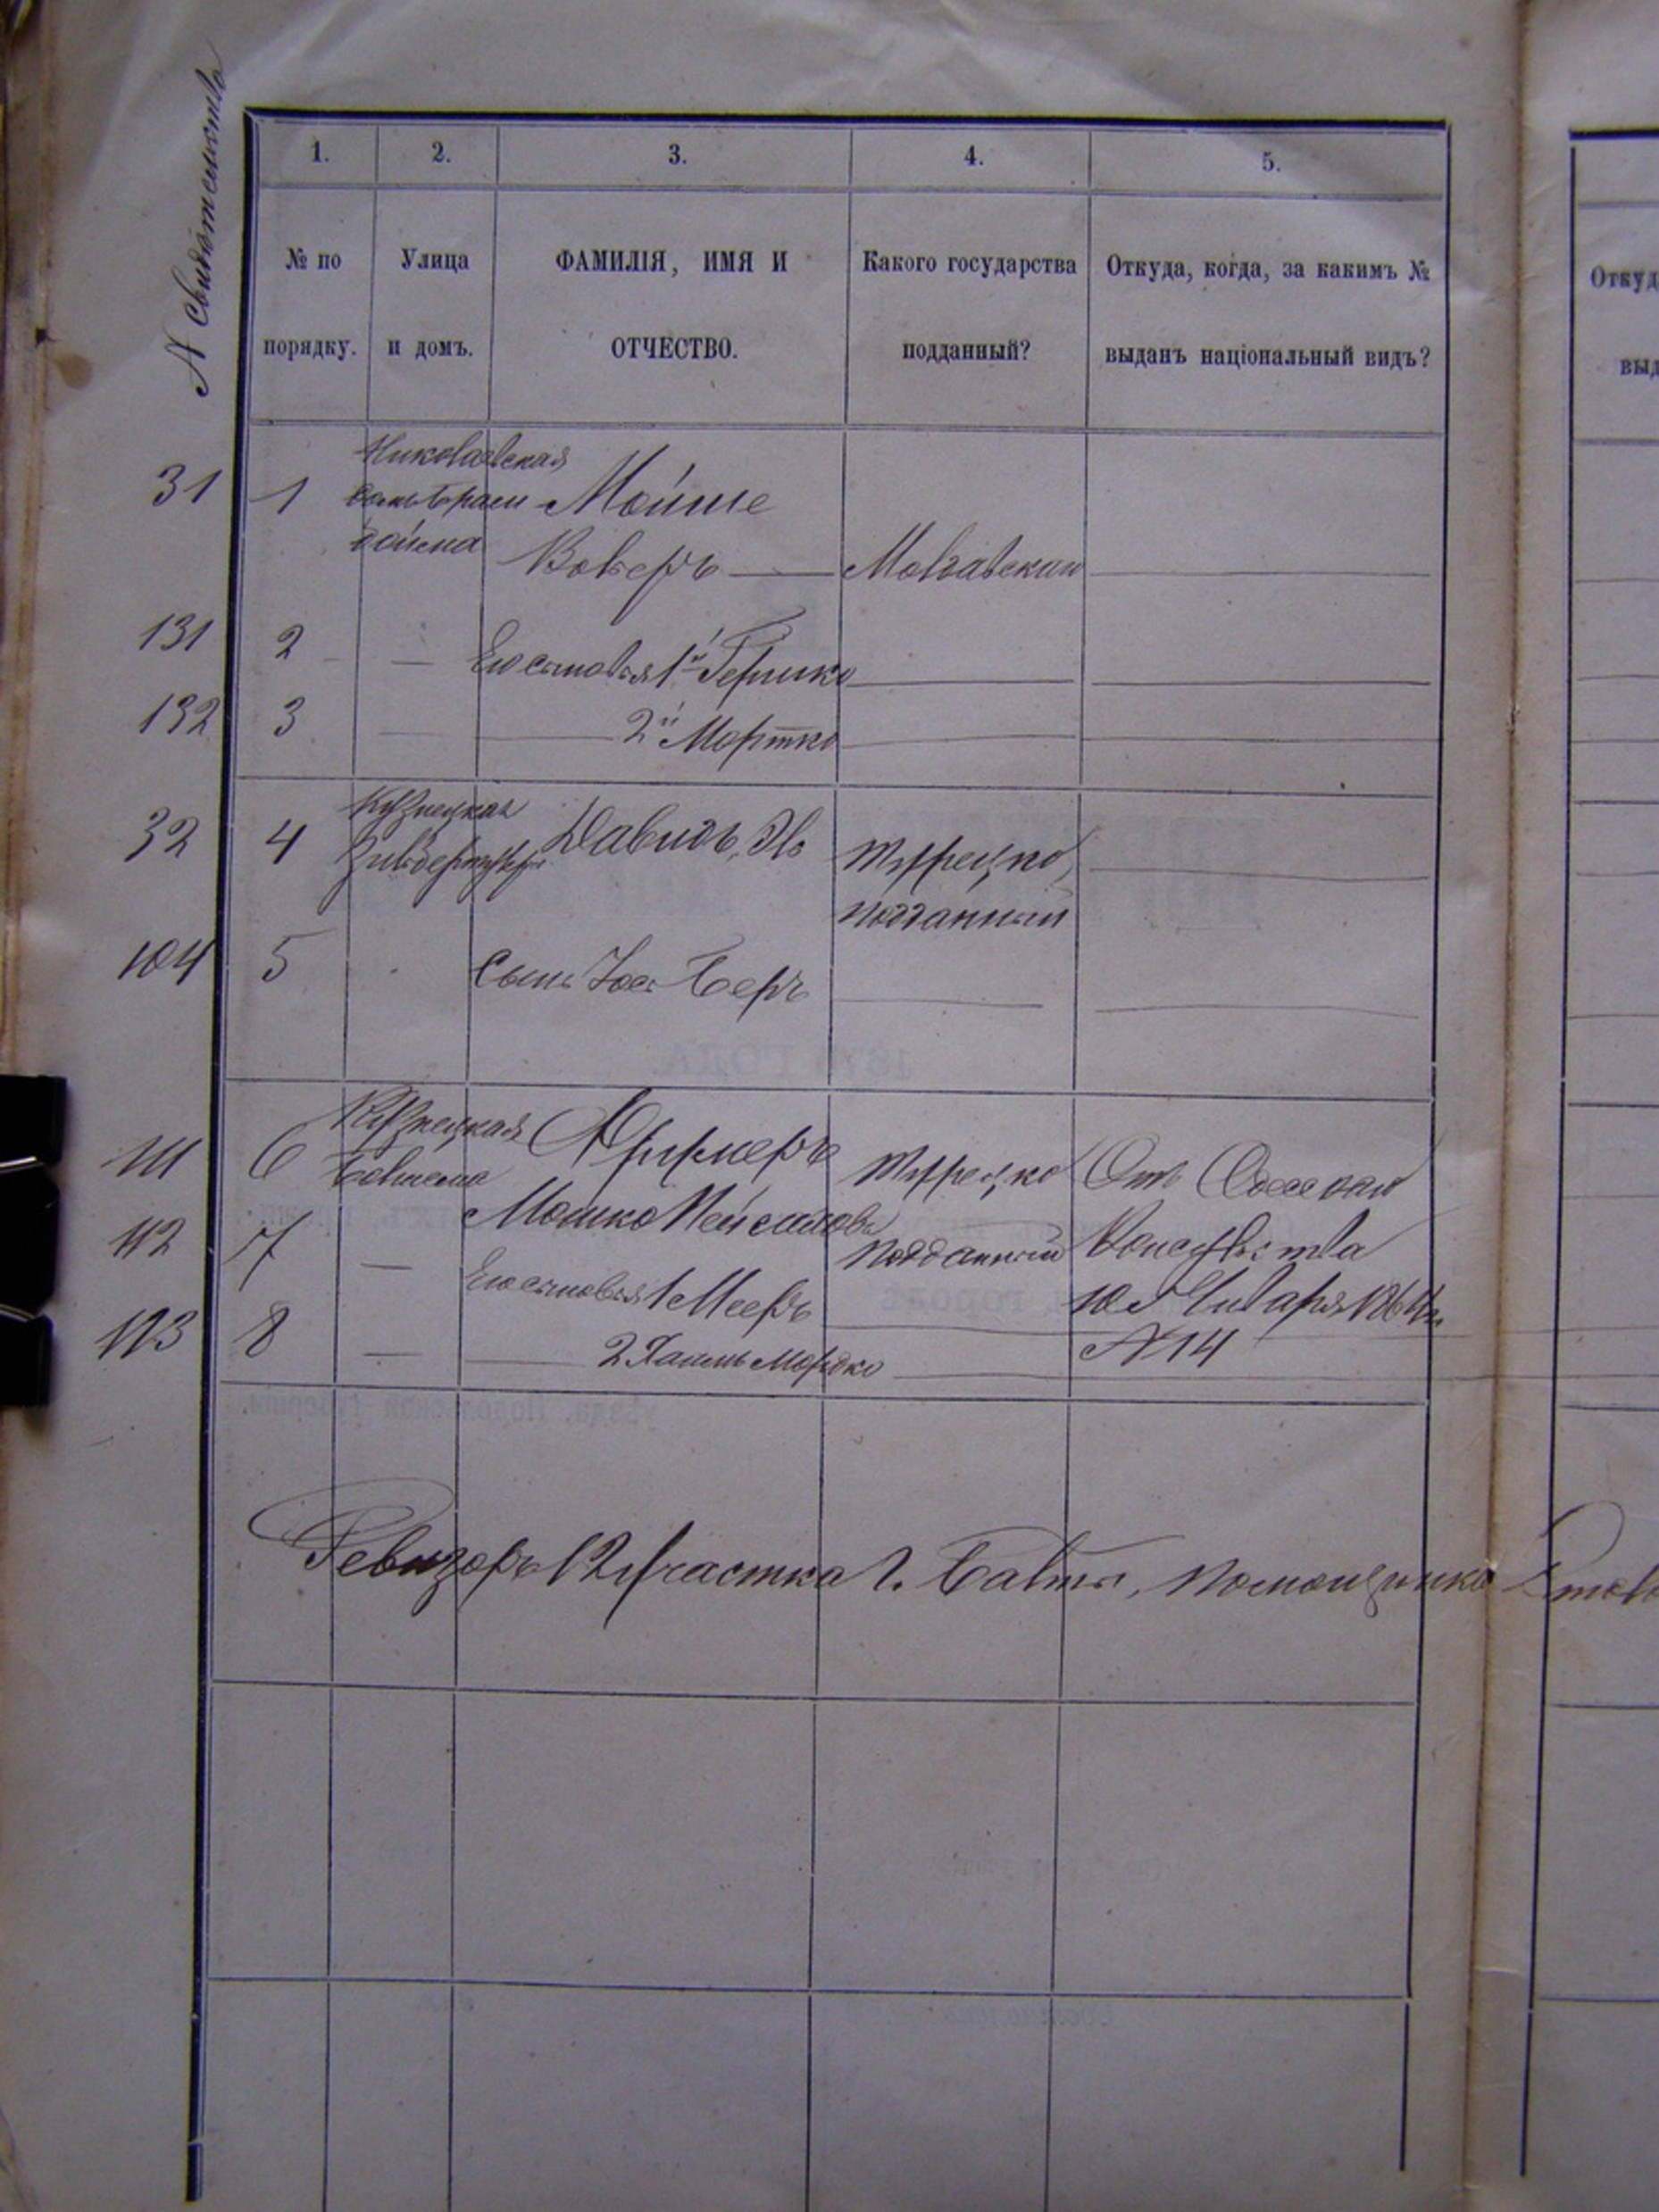 N Свидѣтельства
1. 2. 3. 4. 5.
№ по порядку.
Улица и домъ.
ФАМИЛІЯ, ИМЯ И ОТЧЕСТВО.
Какого государства подданный?
Откуда, когда, за какимъ № выданъ національный видъ?
Откуд
выд
Николаевская
31 1 Мойше
Волеръ — Молдавскій
131 2 — Его сыновья 1й Гершко
132 3 — 2й Мортко
Кузнецкая
32 4 Давидъ Турецко
подданный
104 5 Сынъ Іос Беръ
Кузнецкая
111 6 Турецко Отъ Одескаго
112 7 — Мошко подданный Консульства
Его сыновья 1 Мееръ 10 Января
113 8 — 2 Хаимъ Мордко N 14
Ревизоръ участка г. Балты, помощникъ